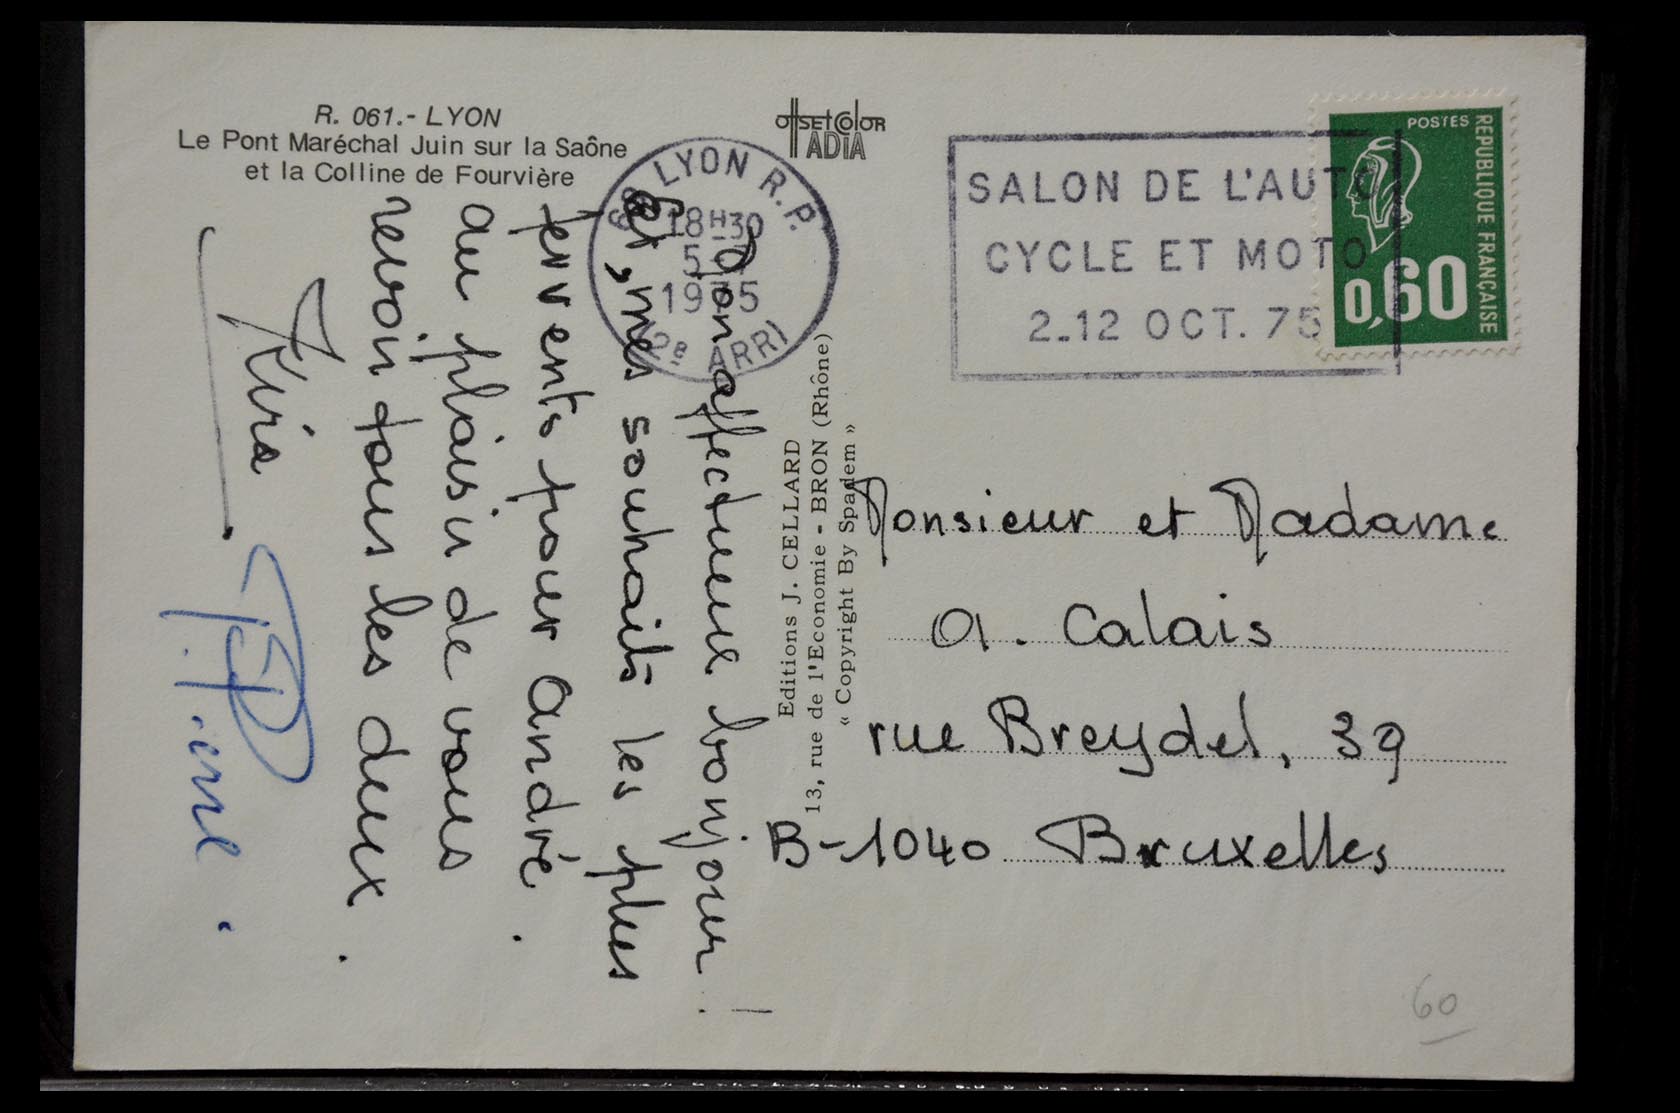 R. 061.- LYON
Le Pont Maréchal Juin sur la Saône
et la Colline de Fourvière
offset color
ADIA
LYON R.P.
18H30
1975
2e ARRt
SALON DE L'AUTO
CYCLE ET MOTO
2_12 OCT. 75
POSTES
REPUBLIQUE FRANÇAISE
0,60
Mon affectueux bonjour !
et, mes souhaits les plus
fervents pour André.
au plaisir de vous
revoir tous les deux.
Pierre.
Editions J. CELLARD
13, rue de l'Economie - BRON (Rhône)
« Copyright By Spadem »
Monsieur et Madame
A. Calais
rue Breydel, 39
B-1040 Bruxelles
60